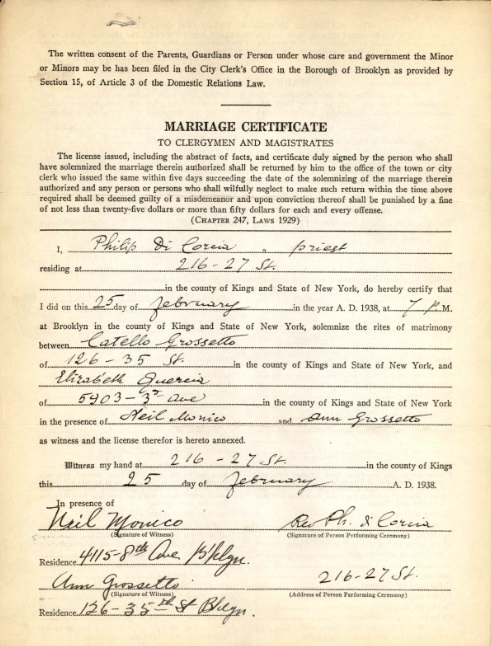 The written consent of the Parents, Guardians or Person under whose care and government the Minor
or Minors may be has been filed in the City Clerk's Office in the Borough of Brooklyn as provided by
Section 15, of Article 3 of the Domestic Relations Law.
MARRIAGE CERTIFICATE
TO CLERGYMEN AND MAGISTRATES
The license issued, including the abstract of facts, and certificate duly signed by the person who shall
have solemnized the marriage therein authorized shall be returned by him to the office of the town or city
clerk who issued the same within five days succeeding the date of the solemnizing of the marriage therein
authorized and any person or persons who shall wilfully neglect to make such return within the time above
required shall be deemed guilty of a misdemeanor and upon conviction thereof shall be punished by a fine
of not less than twenty-five dollars or more than fifty dollars for each and every offense.
(CHAPTER 247, LAWS 1929)
I, Philip Di Corcia, priest
residing at 216-27 St.
in the county of Kings and State of New York, do hereby certify that
I did on this 25 day of February in the year A. D. 1938, at 7 P. M.
at Brooklyn in the county of Kings and State of New York, solemnize the rites of matrimony
between Catello Grossetto
of 126-35 St. in the county of Kings and State of New York, and
Elizabeth Quercia
of 5903-3rd Ave in the county of Kings and State of New York
in the presence of Neil Monico and Ann Grossetto
as witness and the license therefor is hereto annexed.
Witness my hand at 216-27 St. in the county of Kings
this 25 day of February A. D. 1938.
In presence of
Neil Monico Rev Ph. di Corcia
(Signature of Witness) (Signature of Person Performing Ceremony)
Residence 4115-8th Ave Bklyn.
Ann Grossetto 216-27 St.
(Signature of Witness) (Address of Person Performing Ceremony)
Residence 126-35th St Bklyn.